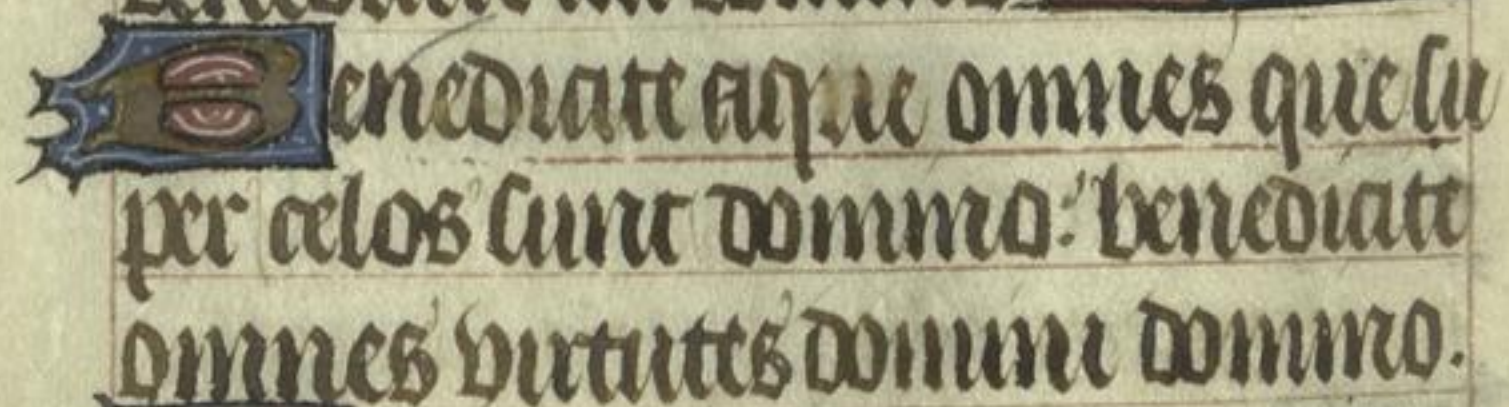 Benedicite aque omnes que su
per celos sunt domino: benedicite
omnes virtutes domini domino.